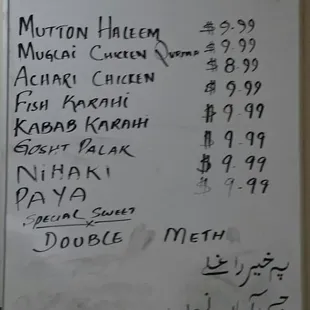 MUTTON HALEEM $ 9.99
MUGLAI CHICKEN QURMA $ 9.99
ACHARI CHICKEN $ 8.99
FISH KARAHI $ 9.99
KABAB KARAHI $ 9.99
GOSHT PALAK $ 9.99
NIHAKI $ 9.99
PAYA $ 9.99
SPECIAL SWEET
DOUBLE METH
په خیر راغلے